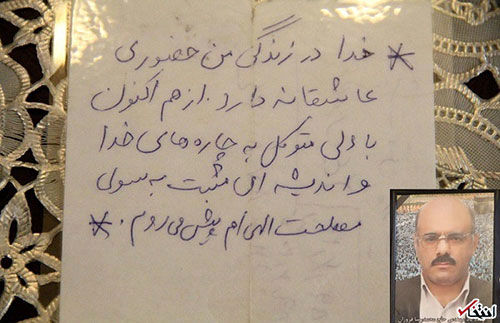 * خدا در زندگی من حضوری
عاشقانه دارد. از هم اکنون
با دلی متوکل به چاره های خدا
و اندیشه ای مثبت به سوی
مصلحت الهی ام پیش می روم. *
انتخاب